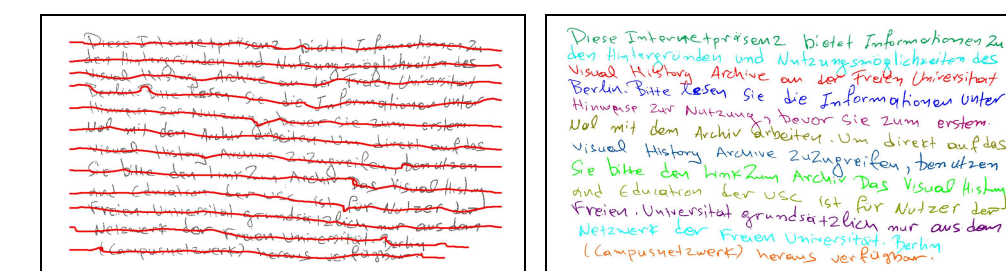 Diese Internetpräsenz bietet Informationen zu
den Hintergründen und Nutzungsmöglichkeiten des
Visual History Archive an der Freien Universität
Berlin. Bitte lesen Sie die Informationen unter
Hinweise zur Nutzung, bevor Sie zum erstem.
Mal mit dem Archiv arbeiten. Um direkt auf das
Visual History Archive zuzugreifen, benutzen
Sie bitte den Link zum Archiv Das Visual History
and Education der USC ist für Nutzer der
Freien. Universität grundsätzlich nur aus dem
Netzwerk der Freien Universität. Berlin
(Campusnetzwerk) heraus verfügbar.
Diese Internetpräsenz bietet Informationen zu
den Hintergründen und Nutzungsmöglichkeiten des
Visual History Archive an der Freien Universität
Berlin. Bitte lesen Sie die Informationen unter
Hinweise zur Nutzung, bevor Sie zum erstem.
Mal mit dem Archiv arbeiten. Um direkt auf das
Visual History Archive zuzugreifen, benutzen
Sie bitte den Link zum Archiv Das Visual History
and Education der USC ist für Nutzer der
Freien. Universität grundsätzlich nur aus dem
Netzwerk der Freien Universität. Berlin
(Campusnetzwerk) heraus verfügbar.